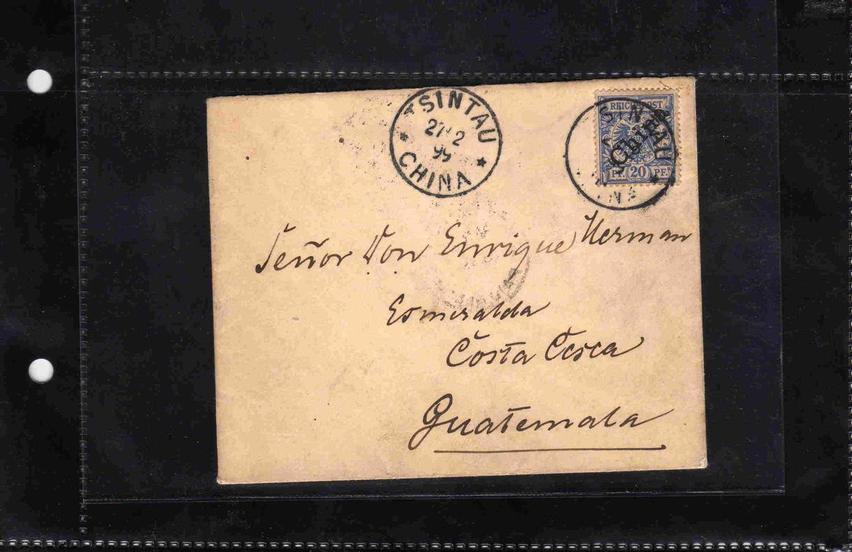 TSINTAU
27/2
99
CHINA
REICHSPOST
China
20
Señor Don Enrique Herman
Esmeralda
Costa Cuca
Guatemala